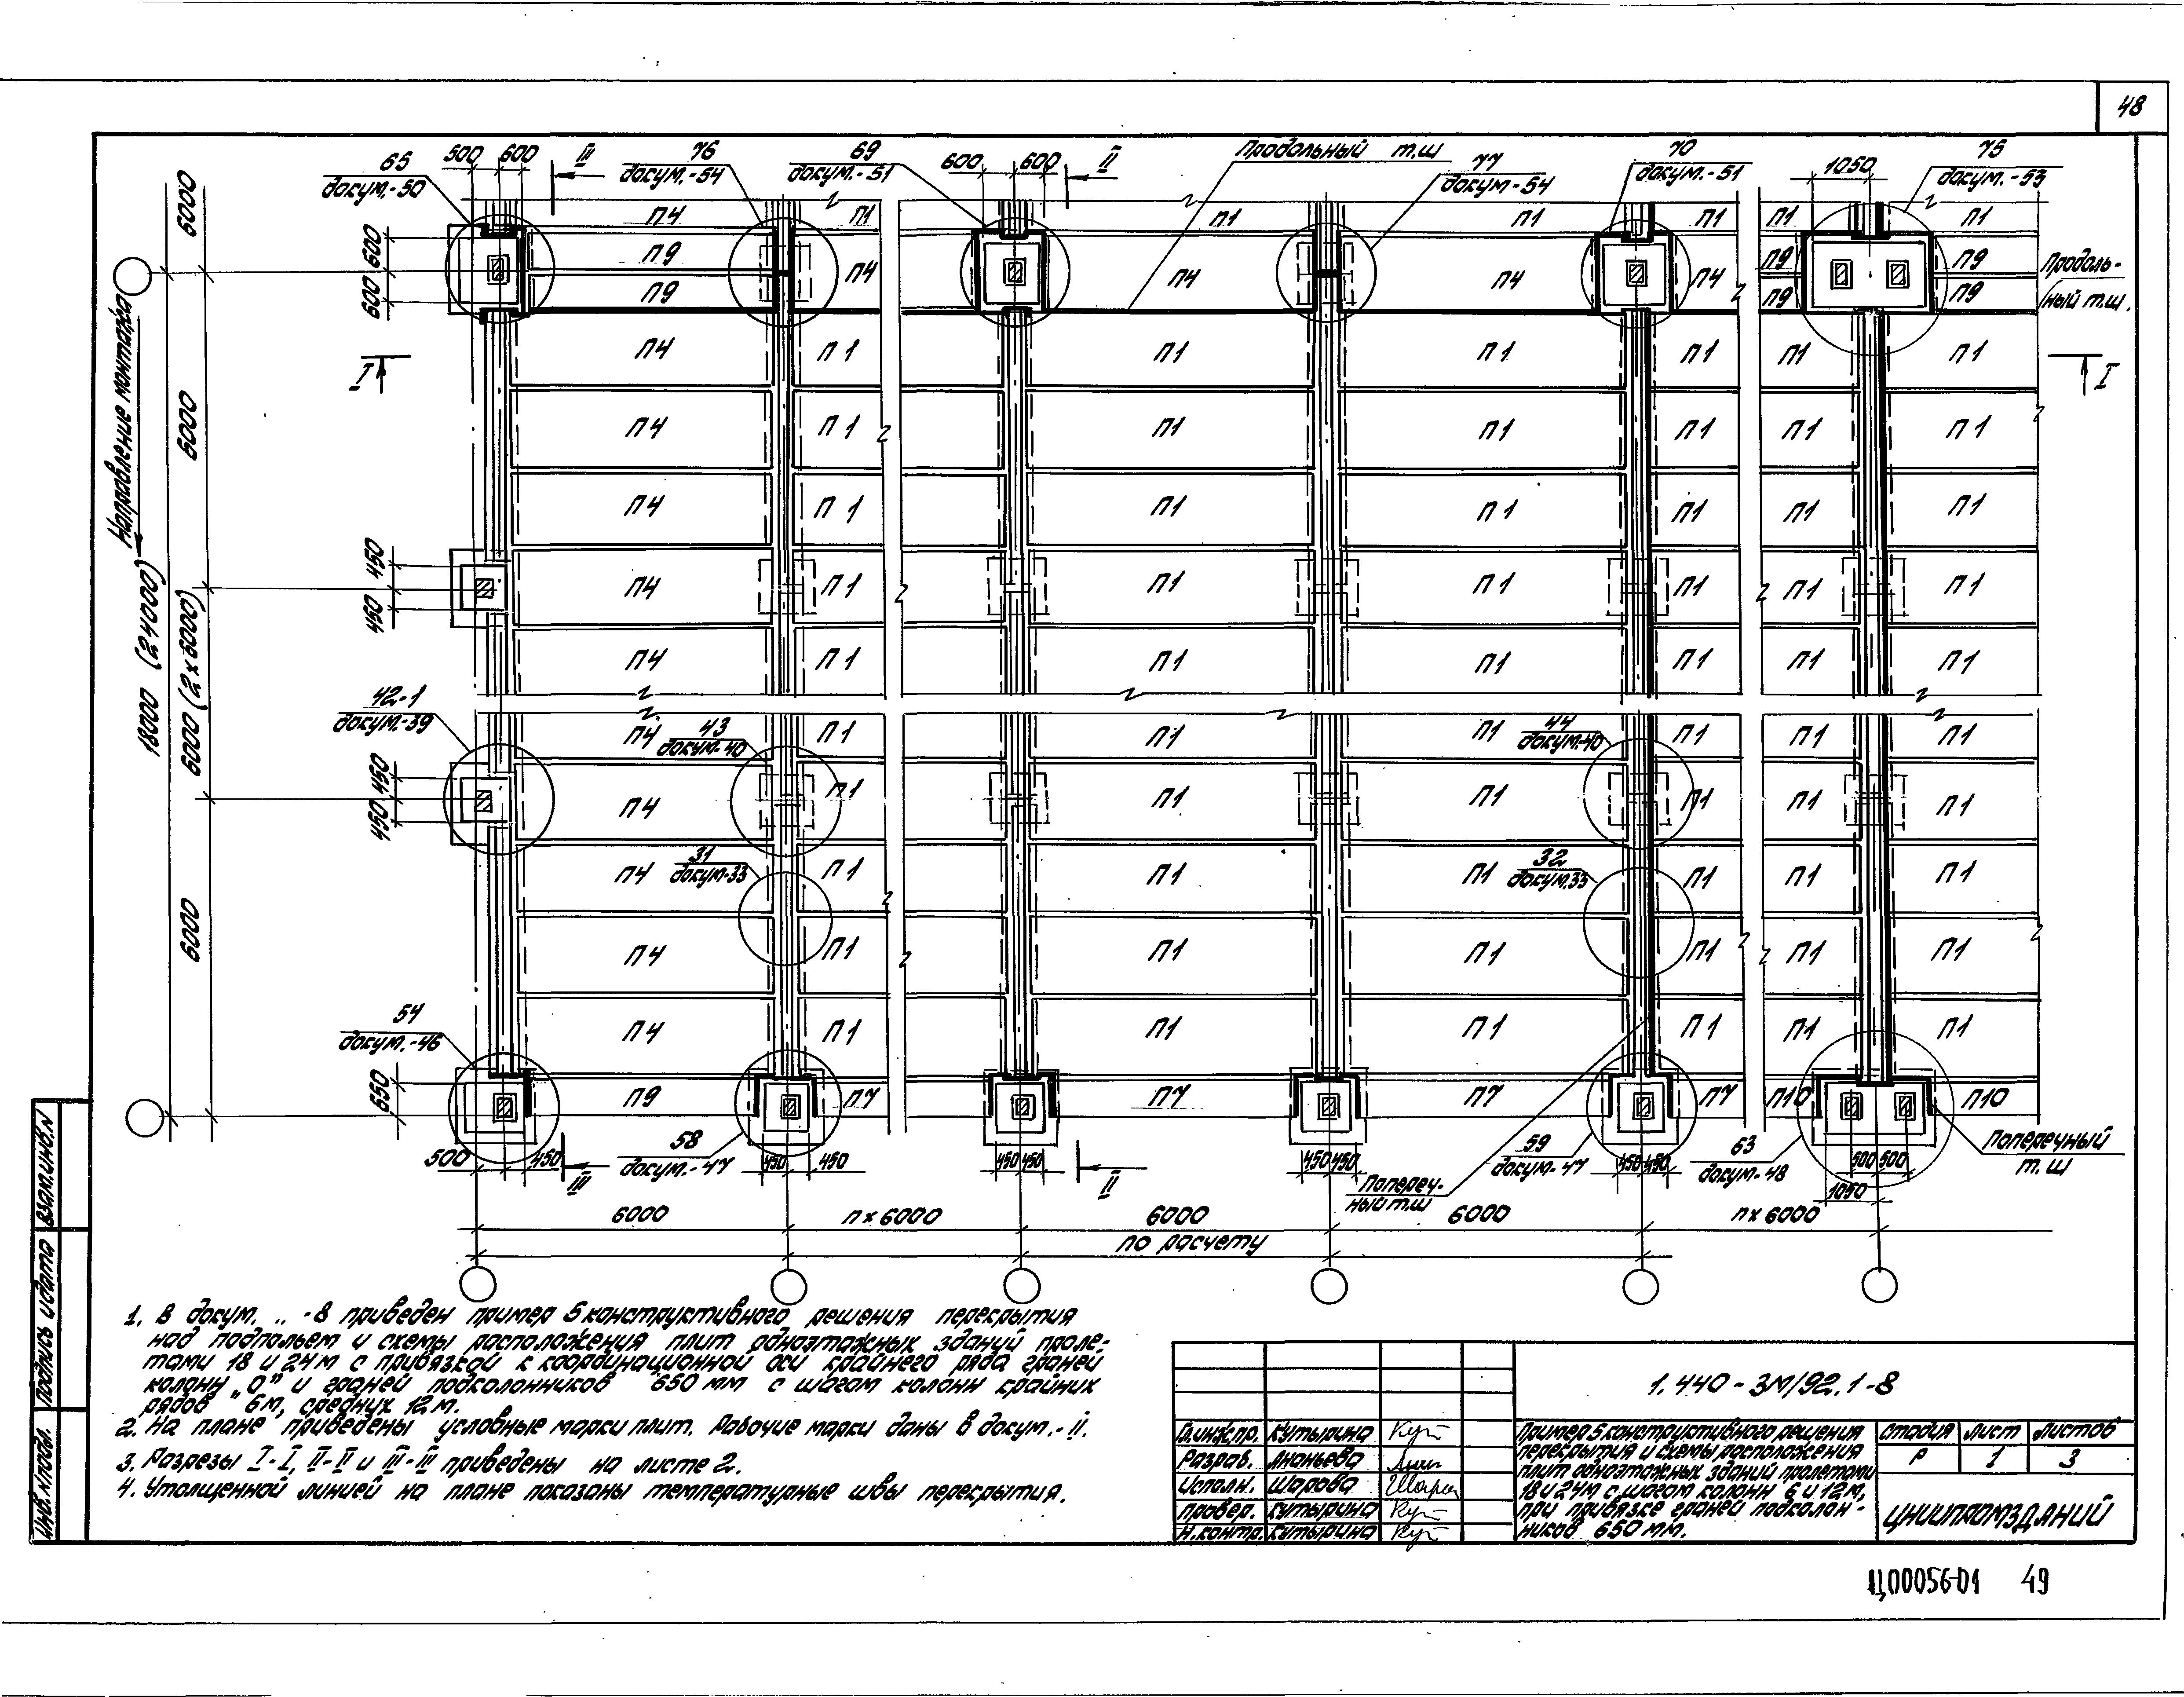 48
65
докум.-50
500 600
III
76
докум.-54
69
докум.-51
600 600
II
Продольный т.ш
77
докум-54
70
докум.-51
1050
75
докум.-53
6000
600
600
П4 П1 П1 П1 П1 П1 П1
П9 П4 П4 П4 П4 П9 П9
П9 П9 П9
Продоль-
ный т.ш.
Направление монтажа
I
I
П4 П1 П1 П1 П1 П1 П1
6000
П4 П1 П1 П1 П1 П1 П1
П4 П1 П1 П1 П1 П1 П1
450
450
П4 П1 П1 П1 П1 П1 П1
18000 (24000)
6000 (2х6000)
П4 П1 П1 П1 П1 П1 П1
42-1
докум.-39
43
докум-40
44
докум-40
П4 П1 П1 П1 П1 П1 П1
450
450
П4 П1 П1 П1 П1 П1 П1
31
докум-33
32
докум.33
П4 П1 П1 П1 П1 П1 П1
6000
П4 П1 П1 П1 П1 П1 П1
54
докум.-46
П4 П1 П1 П1 П1 П1 П1
650
П9 П7 П7 П7 П7 П10 П10
500 450
III
58
докум.-47
450 450
450 450
II
450 450
59
докум-47
450 450
63
докум-48
500 500
1050
Поперечный
т.ш
Попереч-
ный т.ш
6000 п х 6000 6000 6000 п х 6000
по расчету
1. В докум. .. -8 приведен пример 5 конструктивного решения перекрытия
над подпольем и схемы расположения плит одноэтажных зданий проле-
тами 18 и 24м с привязкой к координационной оси крайнего ряда граней
колонн „0" и граней подколонников 650 мм с шагом колонн крайних
рядов 6м, средних 12м.
2. На плане приведены условные марки плит. Рабочие марки даны в докум.-II.
3. Разрезы I-I, II-II и III-III приведены на листе 2.
4. Утолщенной линией на плане показаны температурные швы перекрытия.
Инв.№подл. Подпись и дата Взам.инв.N
1.440-3М/92.1-8
Гл.инж.пр. Кутырина
Разраб. Ананьева
Исполн. Шарова
Провер. Кутырина
Н.контр. Кутырина
Пример 5 конструктивного решения
перекрытия и схемы расположения
плит одноэтажных зданий пролетами
18 и 24м с шагом колонн 6 и 12м,
при привязке граней подколон-
ников 650 мм.
Стадия Лист Листов
Р 1 3
ЦНИИПРОМЗДАНИЙ
Ц00056-01 49